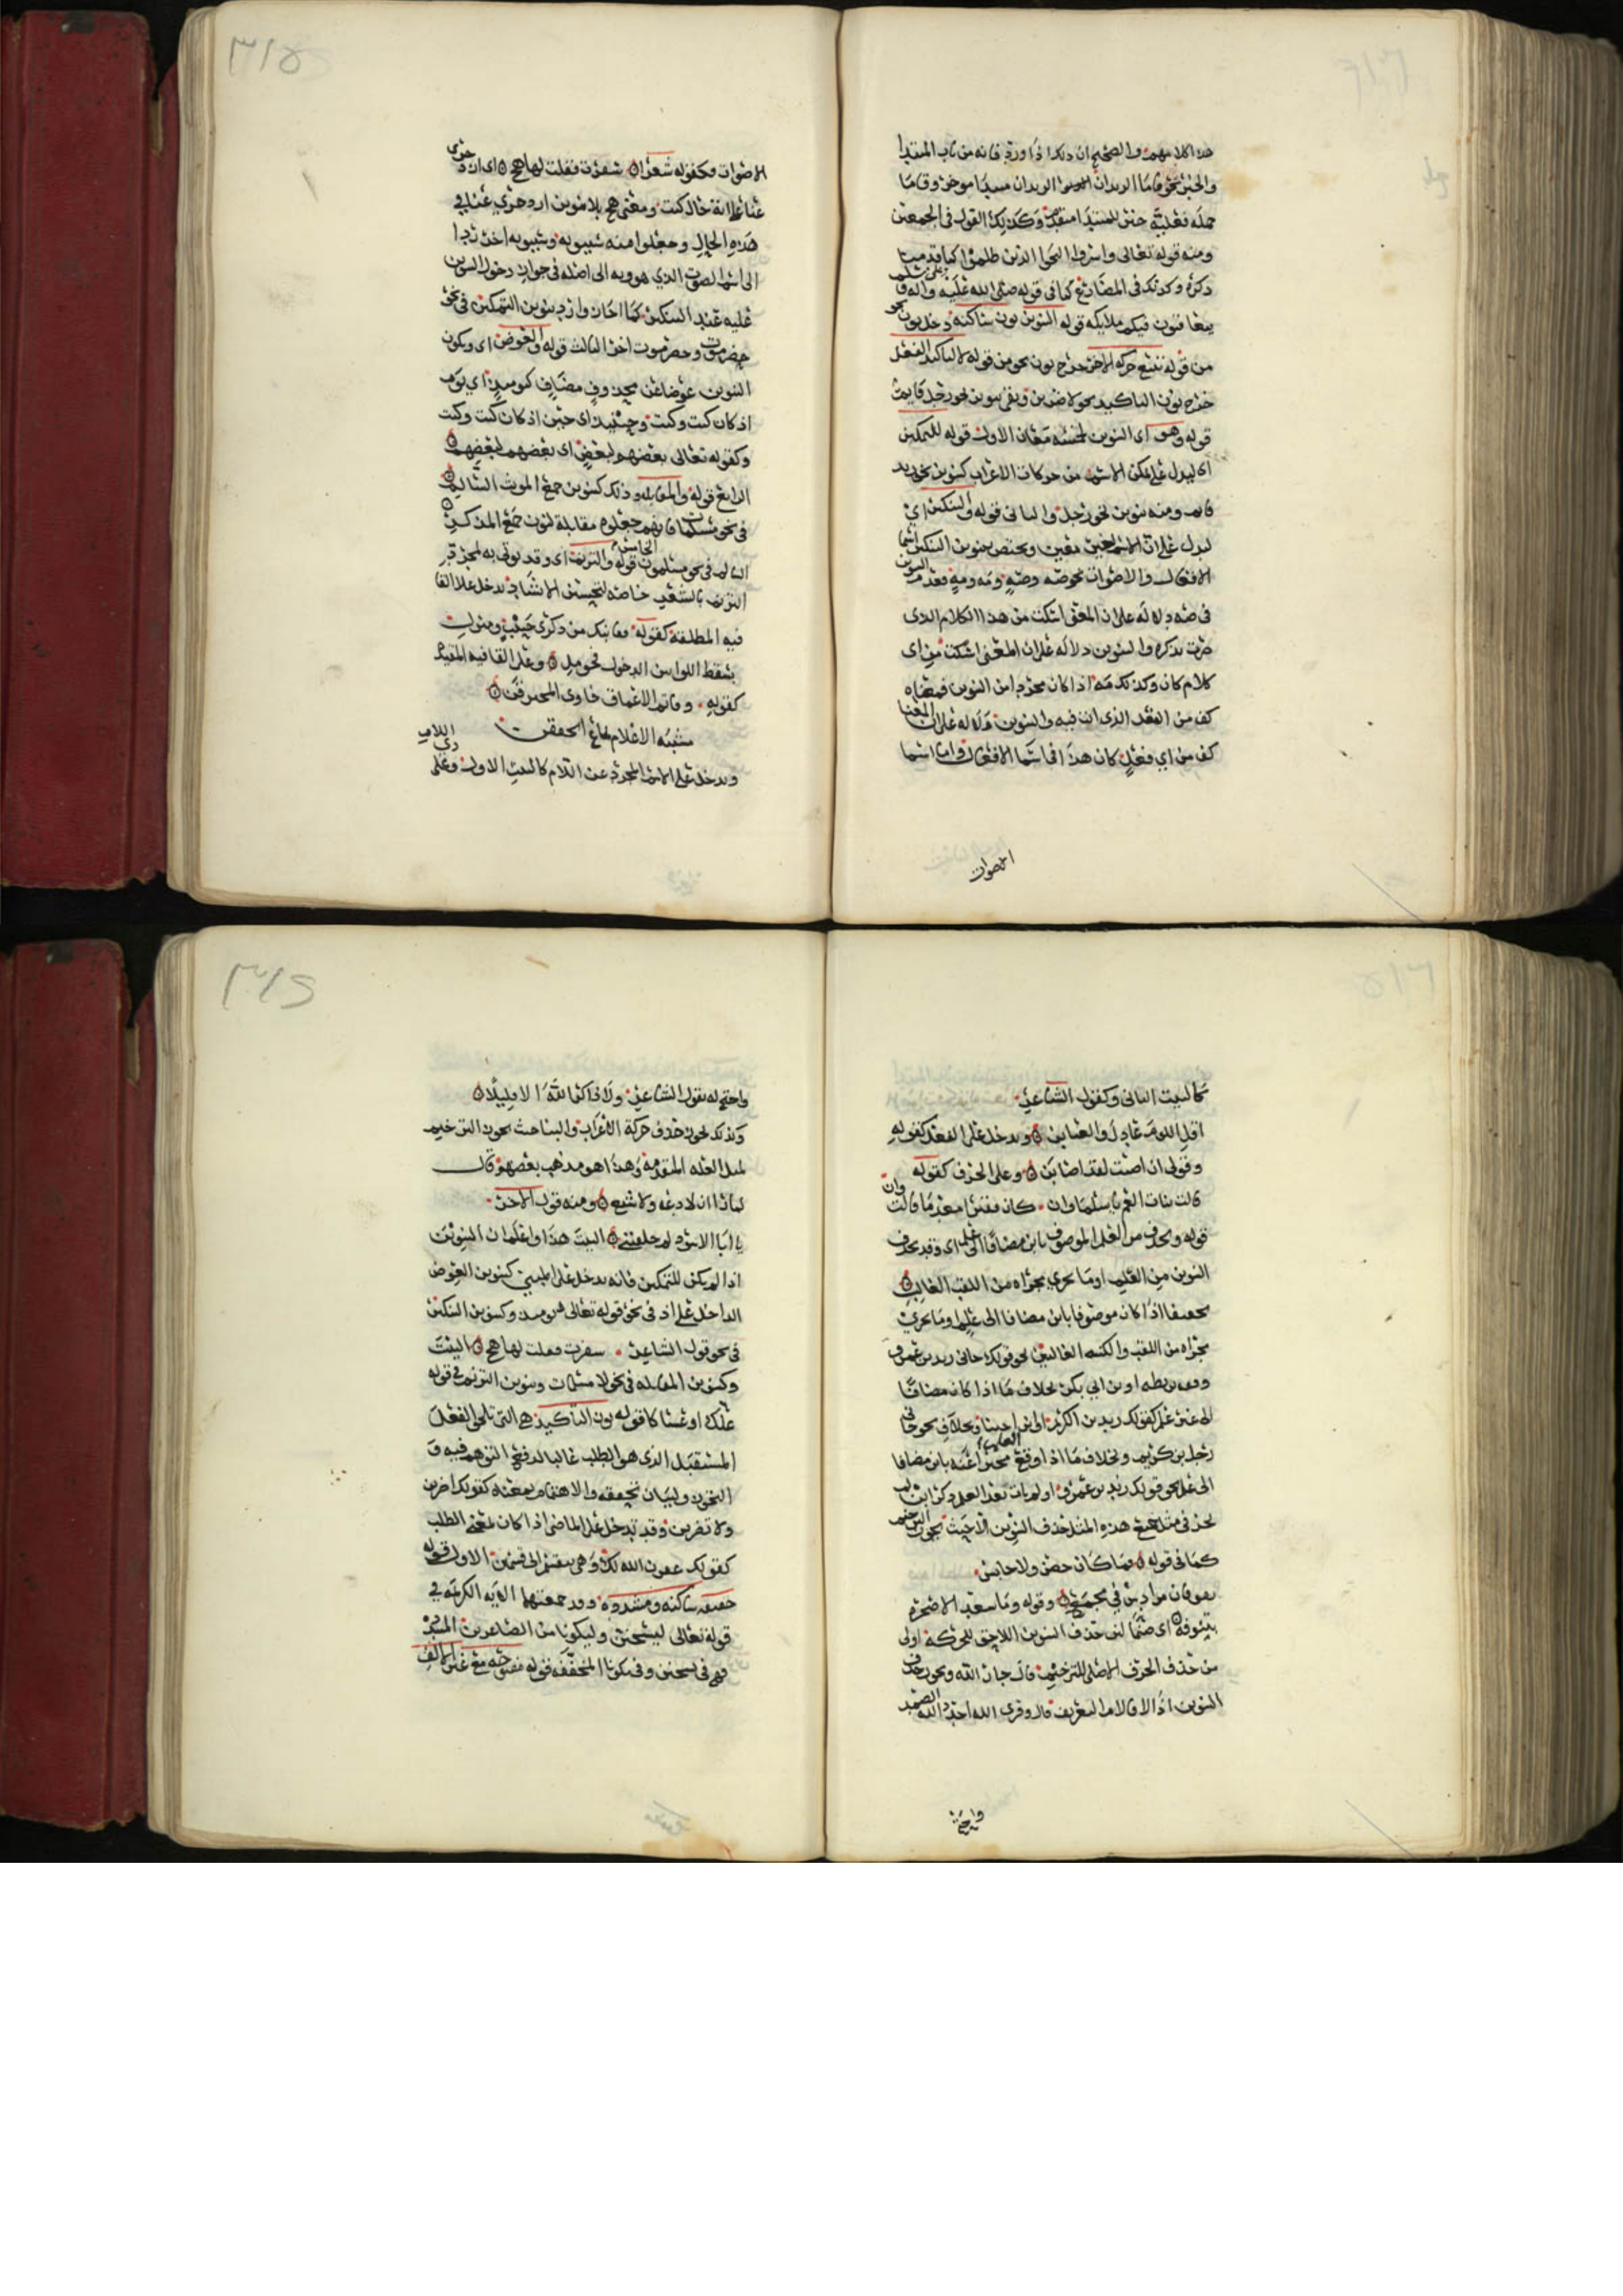 هذا كلامهم والصحيح ان ذلك اذا ورد فانه من باب المبتدا
والخبر نحو قاما الزيدان الزيدان مبتدا موخر وقاما
جمله فعلية خبر للمبتدا متقدم وكذلك القول في الجمعين
ومنه قوله تعالى واسروا النجوا الذين ظلموا كما قدمنا
ذكره وكذلك في المضارع كما في قوله صلى الله عليه وعلى اله وسلم
يتعاقبون فيكم ملايكه قوله التنوين نون ساكنه دخل نون نحو
من قوله تتبع حركه الاخر خرج نون نحو من قوله لا لتاكيد الفعل
خرج نون التاكيد نحو لاضربن وبقي تنوين نحو رجل قايمه
قوله وهو اي التنوين لخمسه معان الاول قوله للتمكين
اي ليدل على تمكن الاسم من حركات الاعراب كتنوين نحو زيد
قايم ومنه تنوين نحو رجل والثاني قوله والتنكير اي
ليدل على ان الاسم لغير معين ويختص بتنوين التنكير اسما
الافعال والاصوات نحو صه وصهٍ ومه ومهٍ فعدم التنوين
في صه دلاله على ان المعنى اسكت من هذا الكلام الذي
صرت تذكره والتنوين دلاله على ان المعنى اسكت من اي
كلام كان وكذلك مه اذا كان مجردا من التنوين فمعناه
كف من الفعل الذي انت فيه والتنوين دلاله على ان المعنا
كف من اي فعل كان هذا في اسما الافعال واما اسما
الاصوات
٣١٥
الاصوات فكقوله شعرا سفرت فقلت لها هج اي انزجري
عنا على اية حال كنت ومعنى هج بلا تنوين ازدجري عنا في
هذه الحال وجعلوا منه سيبويه وسيبويه اخر ردا
الى اسم الصوت الذي هو ويه الى اصله في جواز دخول التنوين
عليه عند التنكير كما اجاز وازد تنوين التمكين في نحو
حضرموت وحضرموت اخر الثالث قوله والعوض اي ويكون
التنوين عوضا عن محذوف مضاف كيوميذ اي يوم
اذ كان كيت وكيت وحينيذ اي حين اذ كان كيت وكيت
وكقوله تعالى بعضهم لبعض اي بعضهم لبعضهم
الرابع قوله والمقابله وذلك كتنوين جمع المونث السالم
في نحو مسلمات فانهم جعلوه مقابلة لنون جمع المذكر
السالم في نحو مسلمون الخامس قوله والترنم اي وقد يوتى به لمجرد
الترنم بالشعر خاصه لتحسين الانشاد يدخل على القا
فيه المطلقة كقوله قفا نبك من ذكرى حبيب ومنزل
بسقط اللوا بين الدخول فحومل وعلى القافيه المقيده
كقوله وقاتم الاعماق خاوي المخترقن
مشتبه الاعلام لماع الخفقن
ويدخل على الاسم المجرد عن اللام كالبيت الاول وعلى ذي اللام
كالبيت الثاني وكقول الشاعر
اقل اللوم عاذل والعتابن ويدخل على الفعل كقوله
وقولي ان اصبت لقد اصابن وعلى الحرف كقوله
قالت بنات العم يا سلما وان كان فقيرا معدما قالت وان
قوله ويحذف من العلم الموصوف بابن مضافا الى علم اي وقد يحذف
التنوين من العلم او ما يجري مجراه من اللقب الغالب
تخفيفا اذا كان موصوفا بابن مضافا الى علم او ما يجري
مجراه من اللقب والكنيه الغالب نحو قولك جاني زيد بن عمرو
بطه او بن ابي بكر بخلاف ما اذا كان مضافا
الى غير علم كقولك زيد بن اكرم او ابن اخينا وبخلاف نحو جاني
رجل بن كريم وبخلاف ما اذا وقع خبرا عنه بابن مضافا
الى علم نحو قولك زيد بن عمرو او لم يات بعد العلم ذكر ابن لم
يجز في مثل جميع هذه المثل حذف التنوين الا حيث يجوز الترخيم
كما في قوله وما كان حصن ولا حابس
يفوقان مرداس في مجمع وقوله وما سعد الاضجم
اي ضما لان حذف التنوين اللاحق للحركة اولى
من حذف الحرف الاصلي للترخيم قال جار الله ويجوز حذف
التنوين اذا لاقا لام التعريف قال وقري الله احد الله الصمد
واحتج
٣١٤
واحتج له بقول الشاعر ولا ذاكر الله الا قليلا
وكذلك يجوز حذف حركة الاعراب والبنا حيث يجوز الترخيم
لمثل العله المتقدمة وهذا هو مذهب بعضهم قال
لما راا ان لا دعه ولا شبع ومنه قول الاخر
يا ابا الاسود لم خليتني البيت هذا واعلم ان التنوين
اذا لم يكن للتمكين فانه يدخل على المبني كتنوين العوض
الداخل على اذ في نحو قوله تعالى من وكتنوين التنكير
في نحو قول الشاعر سفرت فقلت لها هج البيت
وكتنوين المقابله في نحو لا مسلمات وتنوين الترنم في قوله
علك او عساكا قوله نون التاكيد هي التي تلحق الفعل
المستقبل الذي هو الطلب غالبا لدفع التوهم فيه و
التجوز ولبيان تحققه والاهتمام بمعناه كقولك اضربن
ولا تضربن وقد تدخل على الماضي اذا كان بمعنى الطلب
كقولك عفون الله لك وهي تنقسم الى قسمين الاول قوله
خفيفه ساكنه ومشدده وقد جمعتهما الايه الكريمه في
قوله تعالى ليسجنن وليكونا من الصاغرين المشدده
فهي في يسجنن وفي يكونا المخففه قوله مفتوحه مع غير الالف